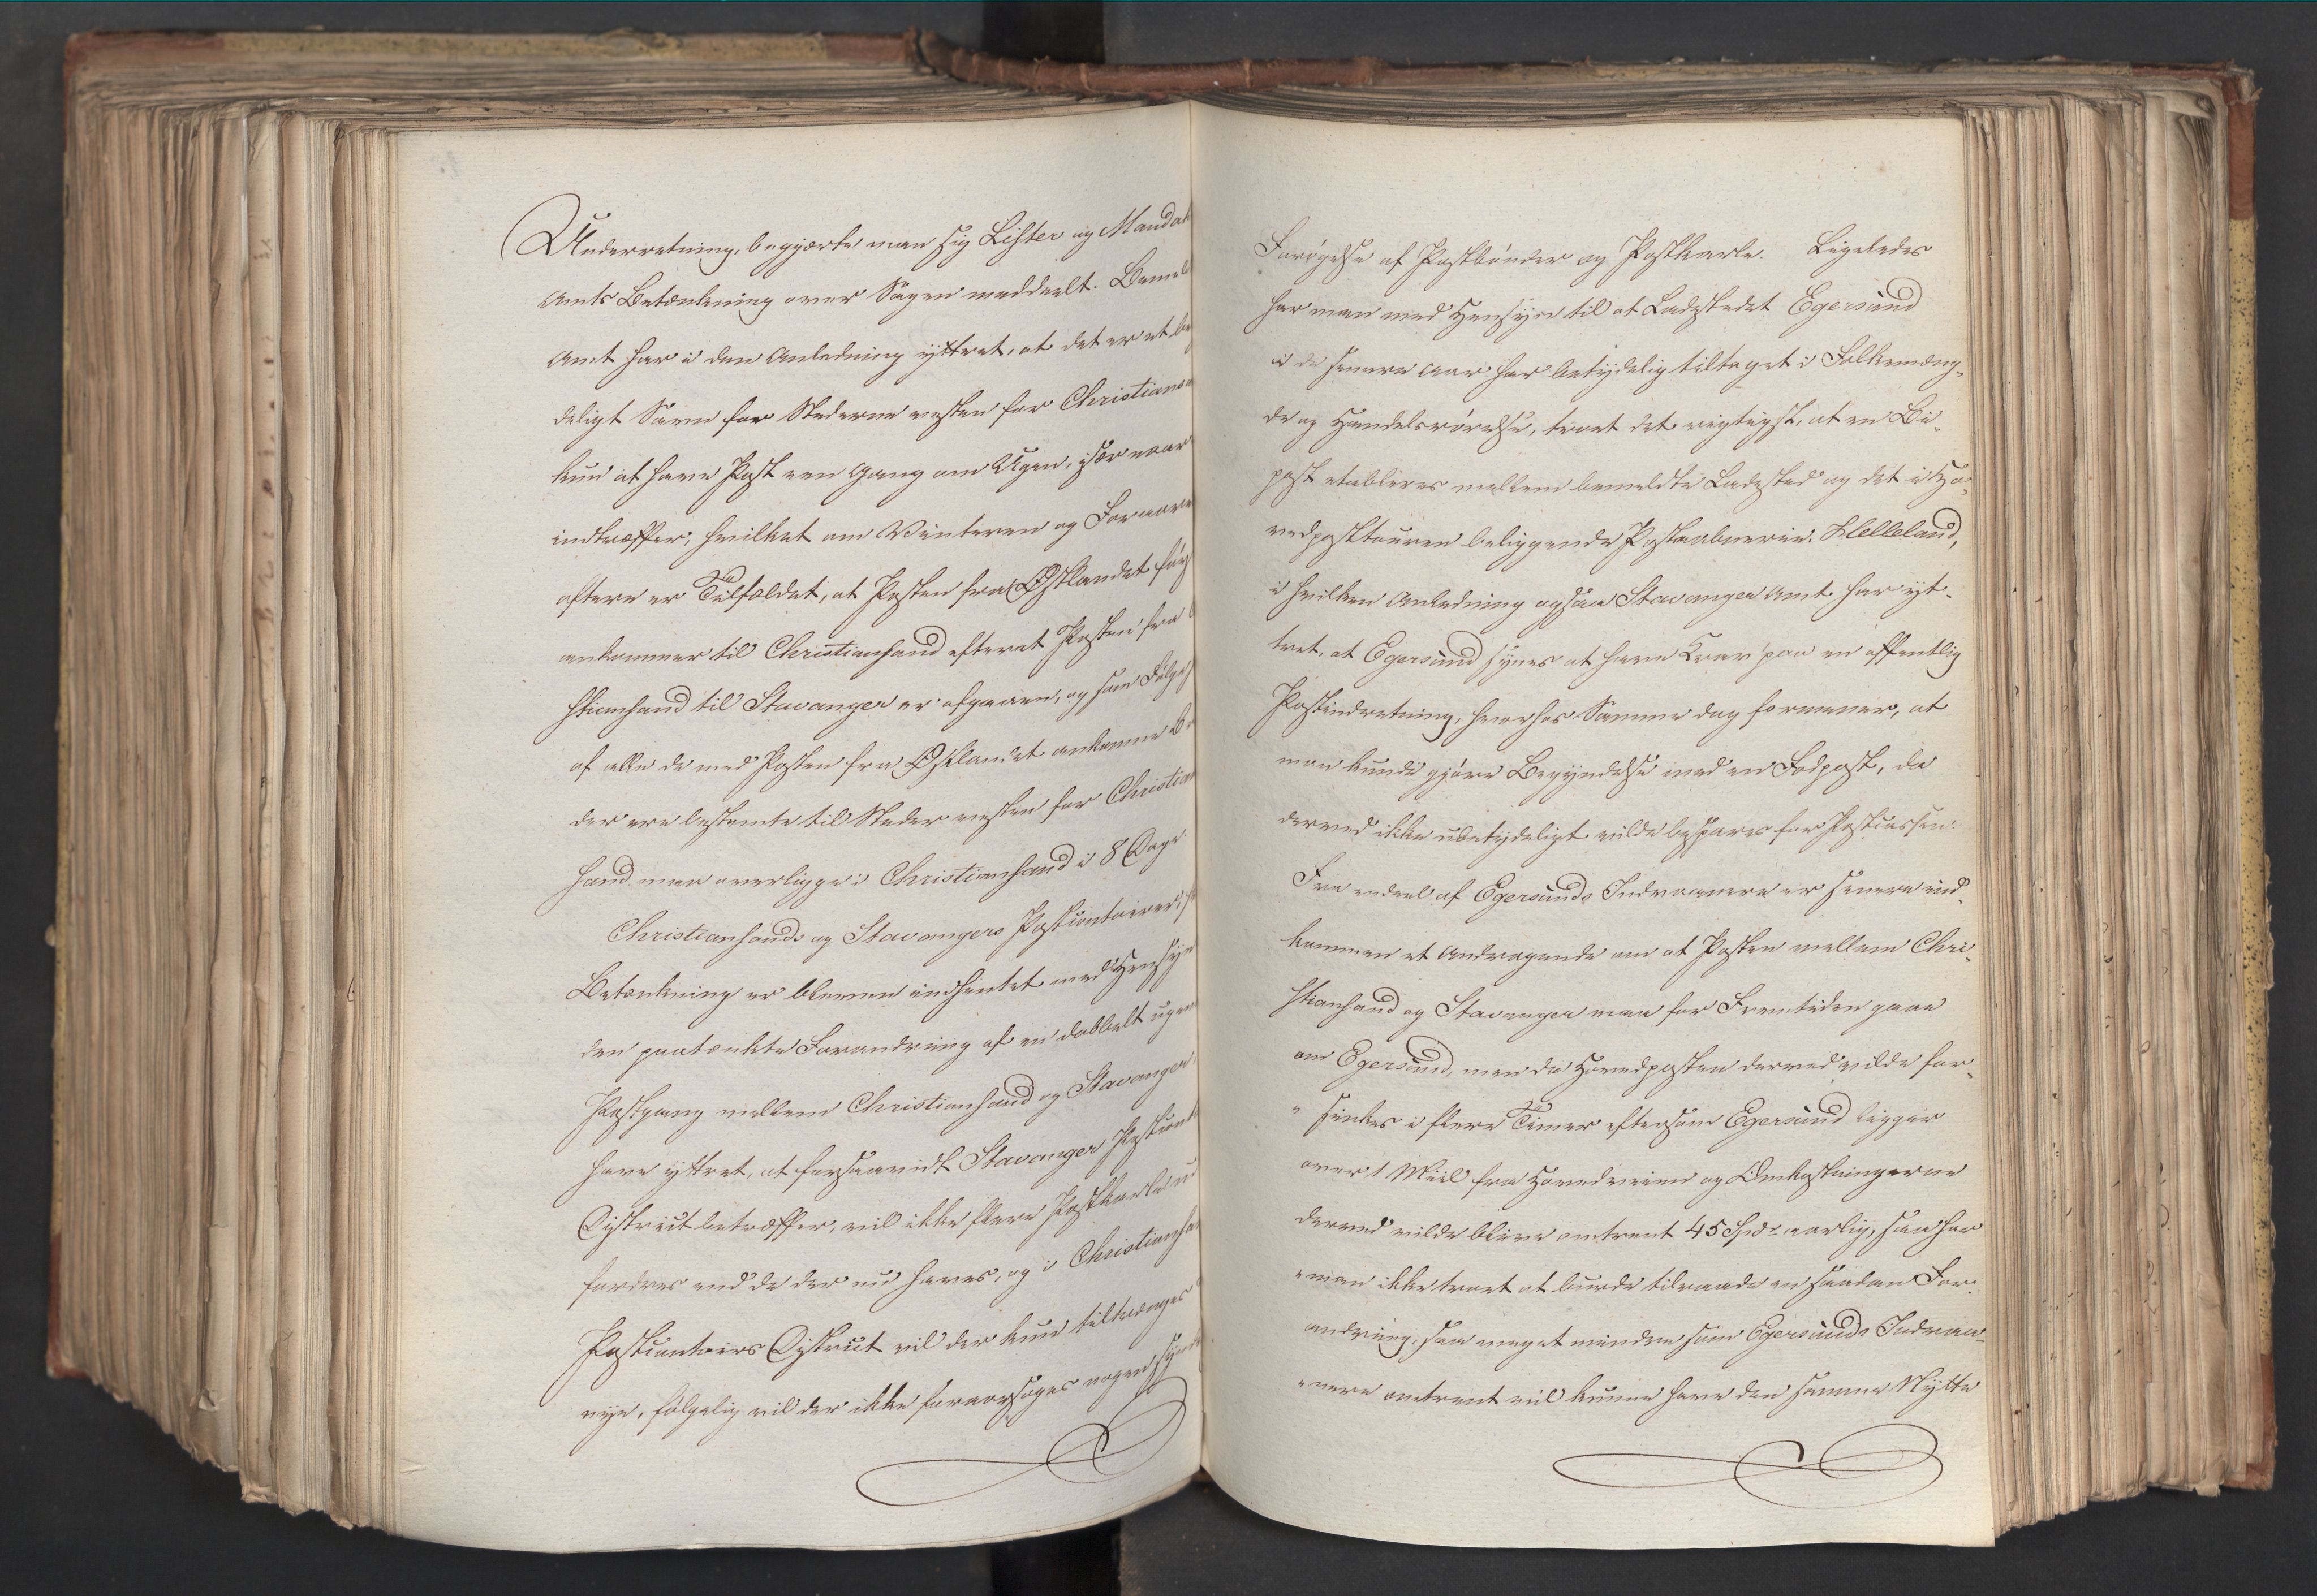 Underretning, begjærte man sig Lister og Mandal
Amts Betænkning over Sagen meddeelt. Bemel
Amt har i den Anledning yttret, at det er et be
deligt Savn for Stederne vesten for Christians
kun at have Post een Gang om Ugen, især naar
indtræffer, hvilket om Vinteren og Foraare
oftere er Tilfældet, at Posten fra Østlandet før
ankommer til Christiansand efterat Posten fra
stiansand til Stavanger er afgaaen, og som Følge
af alle de med Posten fra Østlandet ankomne B
der ere bestemte til Steder vesten for Christian
sand maa overligge i Christiansand i 8 Dage.
Christiansands og Stavangers Postcontoirer,
Betænkning er bleven indhentet med Hensyn
den paatænkte Forandring af en dobbelt ugen
Postgang mellem Christiansand og Stavanger,
have yttret, at forsaavidt Stavanger Postcont
District betræffer, vil ikke flere Postkarle ud
fordres end de der nu haves, og i Christiansa
Postcontoirs District vil der kun tiltrænges
nye, følgelig vil der ikke foraarsages nogen syn
Forøgelse af Postbønder og Postkarle. Ligeledes
har man med Hensyn til at Ladestedet Egersund
i de senere Aar har betydelig tiltaget i Folkemæng-
de og Handelsrørelse, troet det rigtigst, at en Bi-
post etableres mellem bemeldte Ladested og det i Ho-
vedposttouren beliggende Postaabnerie Helleland,
i hvilken Anledning ogsaa Stavanger Amt har yt-
tret, at Egersund synes at have Krav paa en offentlig
Postindretning, hvorhos Samme dog formener, at
man kunde gjøre Begyndelse med en Fodpost, da
derved ikke ubetydeligt vilde besparees for Postcassen.
Fra endeel af Egersunds Indvaanere er senere ind-
kommen et Andragende om at Posten mellem Chri-
stiansand og Stavanger maa for Fremtiden gaae
om Egersund, men da Hovedposten derved vilde for-
"sinkes i flere Timer eftersom Egersund ligger
over 1 Miil fra Hovedveien og Omkostningerne
derved vilde blive omtrent 45 Spd aarlig, saa har
"man ikke troet at burde tilraade en saadan For-
andring, saa meget mindre som Egersunds Indvaa-
"nere omtrent vil kunne have den samme Nytte